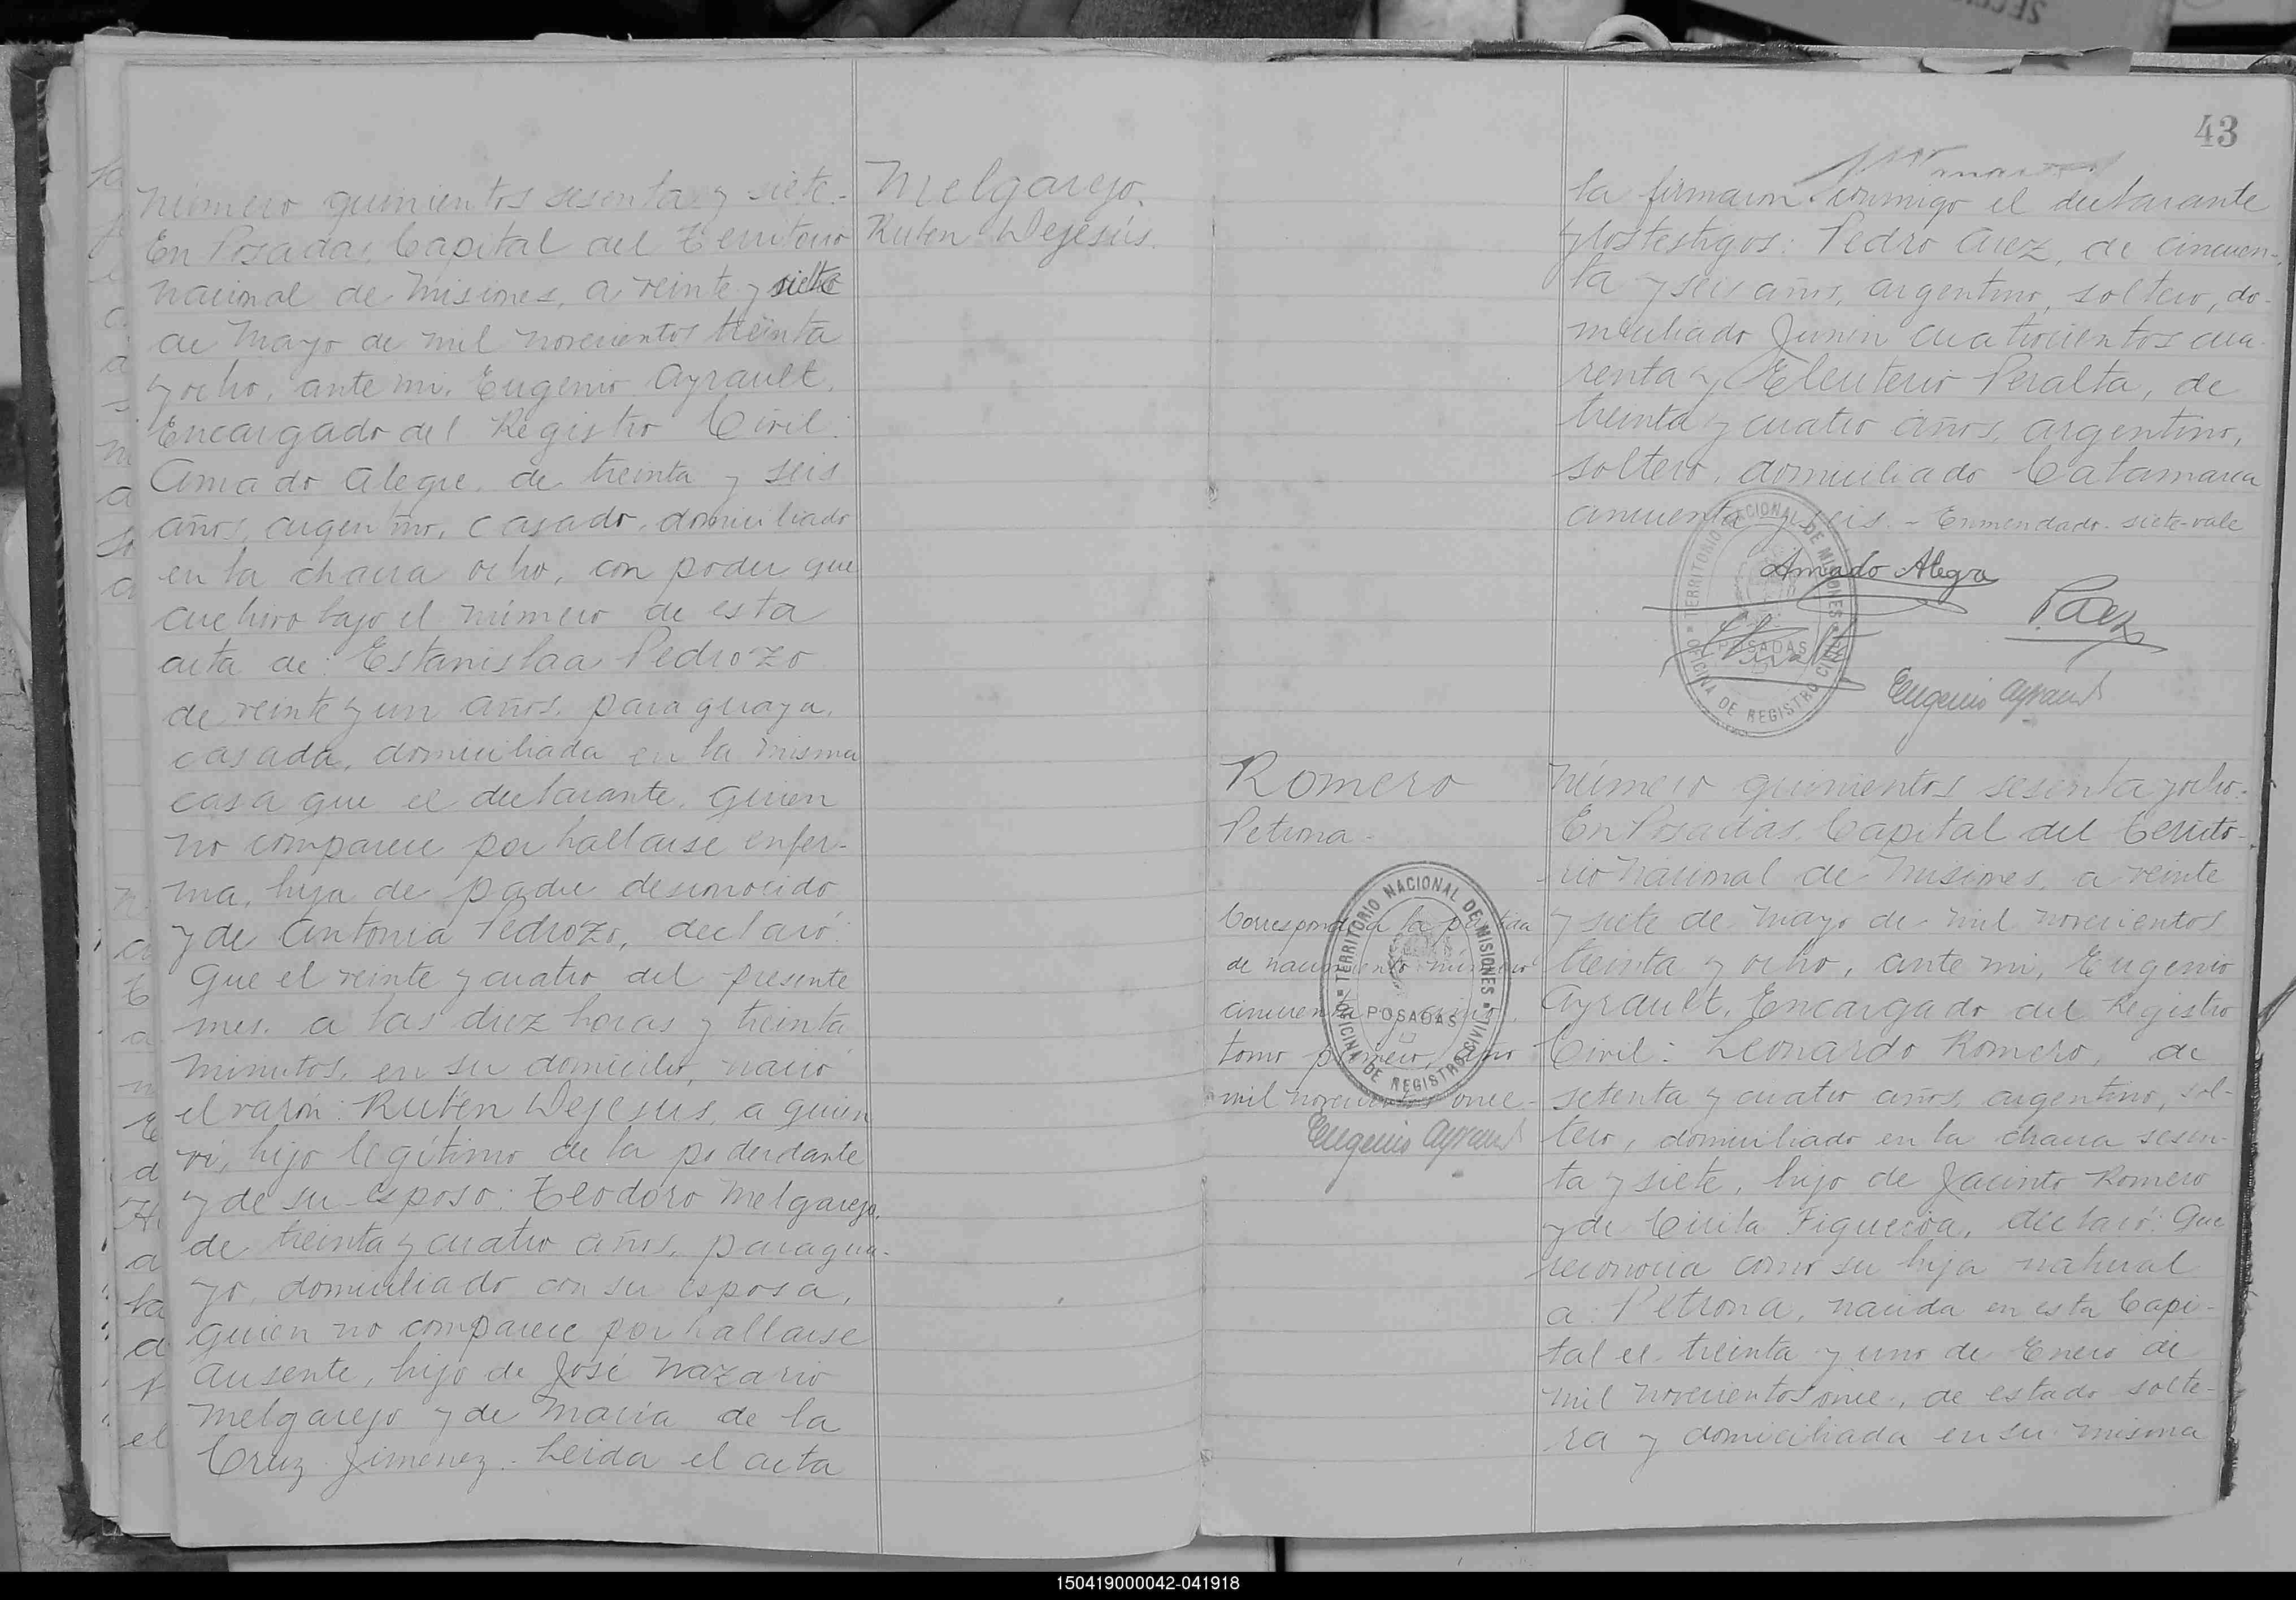 número quinientos sesenta y siete.-
En Posadas, Capital del Territorio
nacional de Misiones, a veinte y siete
de Mayo de mil novecientos treinta
y ocho, ante mi, Eugenio Ayrault,
Encargado del Registro Civil:
Amado Alegre, de treinta y seis
años, argentino, casado, domiciliado
en la chacra ocho, con poder que
archivo bajo el número de esta
acta de: Estanislaa Pedrozo
de veinte y un años, paraguaya,
casada, domiciliada en la misma
casa que el declarante, quien
no comparece por hallarse enfer-
ma, hija de padre desconocido
y de Antonia Pedrozo, declaró:
Que el veinte y cuatro del presente
mes, a las diez horas y treinta
minutos, en su domicilio, nació
el varón: Rubén Dejesús, a quien
ví, hijo legítimo de la poderdante
y de su esposo: Teodoro Melgarejo,
de treinta y cuatro años, paragua-
yo, domiciliado con su esposa,
quien no comparece por hallarse
ausente, hijo de José Nazario
Melgarejo y de Maria de la
Cruz Jimenez. Leida el acta
Melgarejo.
Rubén Dejesús.
43
la firmaron conmigo el declarante
y los testigos: Pedro Paez, de cincuen-
ta y seis años, argentino, soltero, do-
miciliado Junin cuatrocientos cua-
renta y Eleuterio Peralta, de
treinta y cuatro años, argentino,
soltero, domiciliado Catamarca
cincuenta y seis.- Enmendado. siete-vale
TERRITORIO NACIONAL DE MISIONES
OFICINA DE REGISTRO CIVIL
POSADAS
Amado Alegre
P. Paez
Eugenio Ayrault
Romero
Petrona-
Corresponde a la partida
de nacimiento número
cincuenta
tomo primero, año
mil novecientos once-
Eugenio Ayrault
TERRITORIO NACIONAL DE MISIONES
OFICINA DE REGISTRO CIVIL
POSADAS
número quinientos sesenta y ocho.-
En Posadas, Capital del Territo-
rio Nacional de Misiones, a veinte
y siete de Mayo de mil novecientos
treinta y ocho, ante mi, Eugenio
Ayrault, Encargado del Registro
Civil: Leonardo Romero, de
setenta y cuatro años, argentino, sol-
tero, domiciliado en la chacra sesen-
ta y siete, hijo de Jacinto Romero
y de Cirila Figueroa, declaró: Que
reconocia como su hija natural
a: Petrona, nacida en esta Capi-
tal el treinta y uno de Enero de
mil novecientos once, de estado solte-
ra y domiciliada en su misma
150419000042-041918